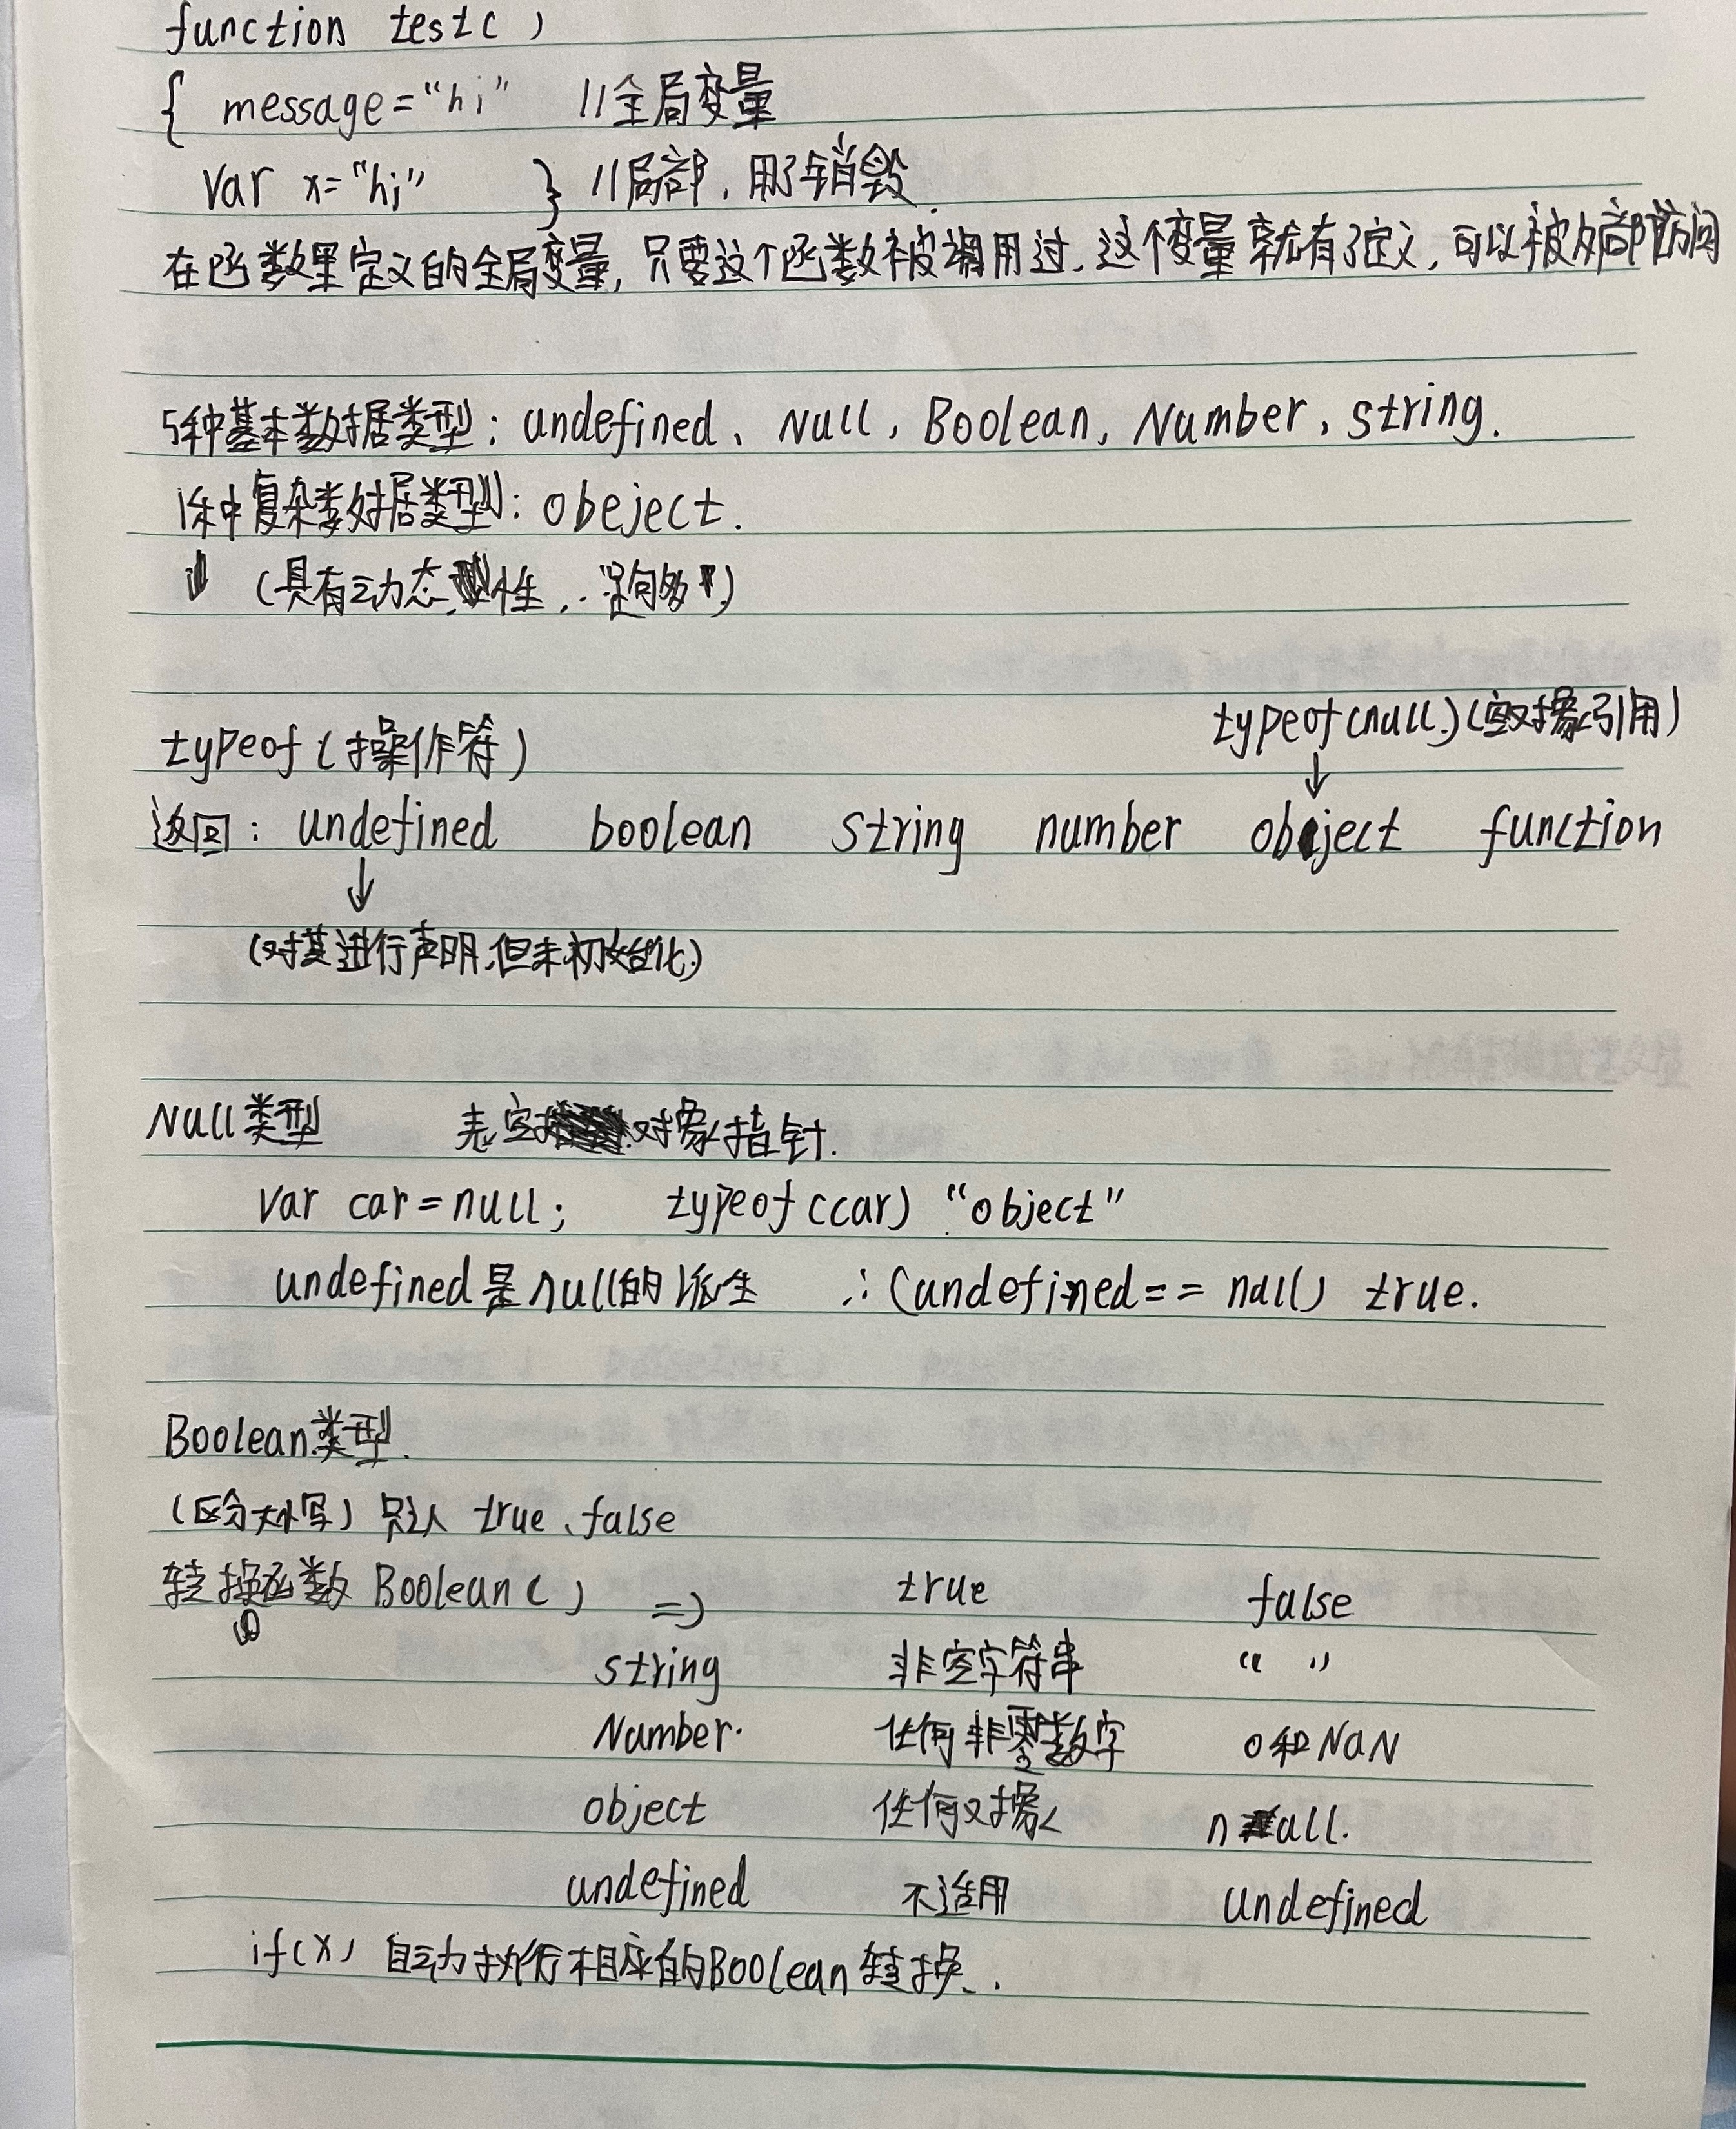 function test( )
{ message="hi" //全局变量
var x="hi" } //局部,用了销毁.
在函数里定义的全局变量,只要这个函数被调用过,这个变量就有了定义,可以被外部访问
5种基本数据类型:undefined、Null,Boolean,Number,string.
1种复杂数据类型:obeject.
(具有动态性,
typeof(null)(空对象引用)
typeof(操作符)
返回:undefined boolean string number object function
↓
(对其进行声明,但未初始化)
Null类型 表空对象指针.
var car=null; typeof(car) "object"
undefined是null的派生 ∴(undefined==null) true.
Boolean类型.
(区分大小写)只认 true、false
转换函数 Boolean( ) => true false
string 非空字符串 " "
Number. 任何非零数字 0和NaN
object 任何对象 null.
undefined 不适用 undefined
if(x) 自动执行相应的Boolean转换.